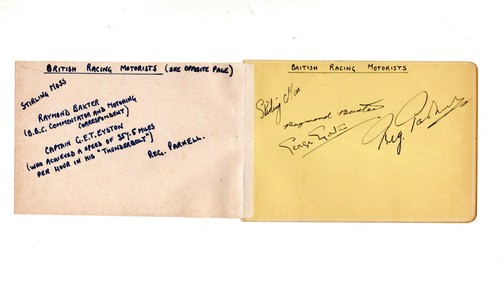 BRITISH RACING MOTORISTS (SEE OPPOSITE PAGE)
STIRLING MOSS
RAYMOND BAXTER
(B.B.C. COMMENTATOR AND MOTORING
CORRESPONDENT)
CAPTAIN G.E.T. EYSTON
(WHO ACHIEVED A SPEED OF 357.5 MILES
PER HOUR IN HIS "THUNDERBOLT")
REG. PARNELL.
BRITISH RACING MOTORISTS
Stirling Moss
Raymond Baxter
George Eyston
Reg. Parnell